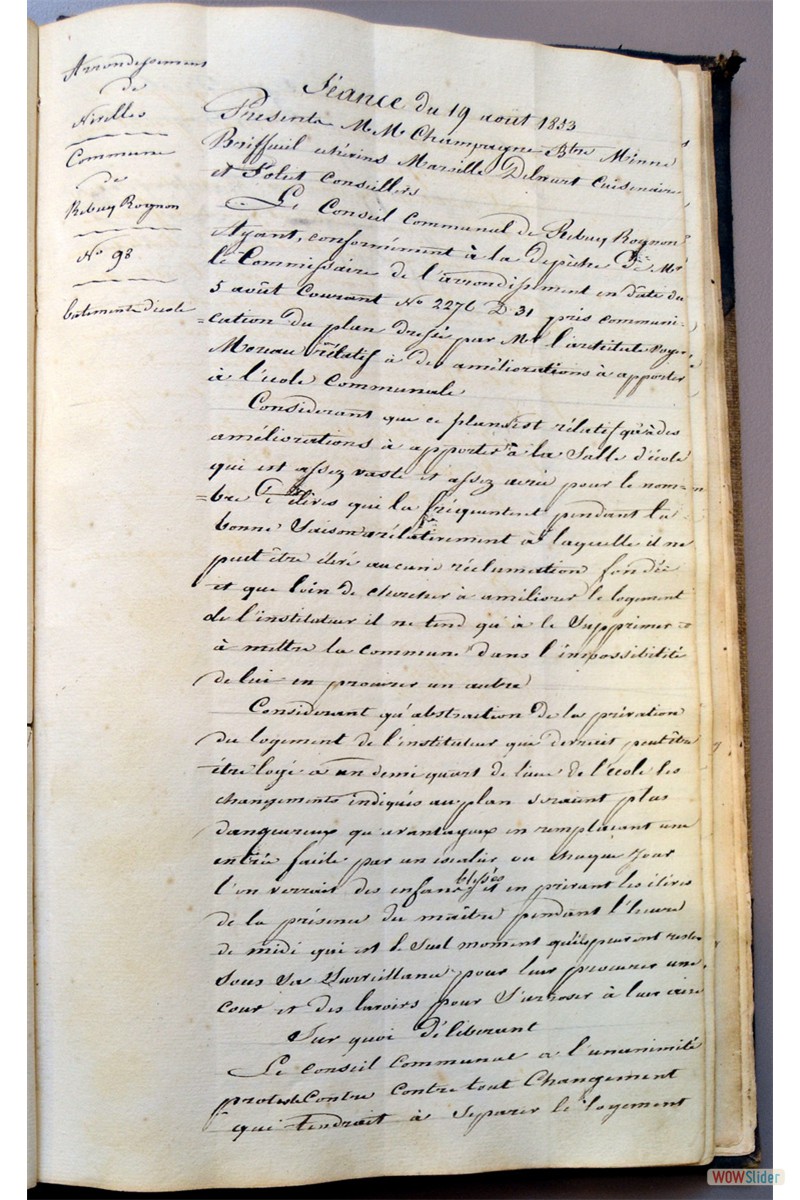 Arrondissement
de
Nivelles
Commune
de
Rebecq Rognon
N° 98
batiments d'ecole
Séance du 19 août 1853
Presents M.M. Champagne Btre Minne
Briffeuil Marsille Delwart Cuisenaire
et Solet Conseillers
Le Conseil Communal de Rebecq Rognon
Ayant, conformément à la depêche de Mr
le Commissaire de l'arrondissement en date du
5 août Courant N° 2276 D 31 pris communi-
=cation du plan dressé par Mr l'architecte
Moreau rélatif à des améliorations à apporter
à l'école Communale
Considerant que ce plan n'est rélatif qu'à des
améliorations à apporter à la Salle d'école
qui est assez vaste et assez aeriée pour le nom-
=bre d'élèves qui la fréquentent pendant la
bonne Saison rélativement à laquelle il ne
peut être élevé aucune réclamation fondée
et que loin de chercher à améliorer le logement
de l'instituteur il ne tend qu'à le Supprimer et
à mettre la commune dans l'impossibilité
de lui en procurer un autre
Considerant qu'abstraction de la privation
du logement de l'instituteur qui devrait peut être
être logé à un demi quart de lieue de l'école les
changements indiqués au plan seraient plus
dangereux qu'avantageux en remplacant une
entrée facile par un escalier ou chaque jour
l'on verrait des enfans blessés et en privant les élèves
de la présence du maître pendant l'heure
de midi qui est le Seul moment qu'ils peuvent rester
Sous Sa Surveillance pour leur procurer une
cour et des lavoirs pour S'arroser à leur aise
Sur quoi Déliberant
Le conseil communal a l'unanimité
proteste Contre Contre tout Changement
qui tendrait à Séparer le logement
WOWSlider